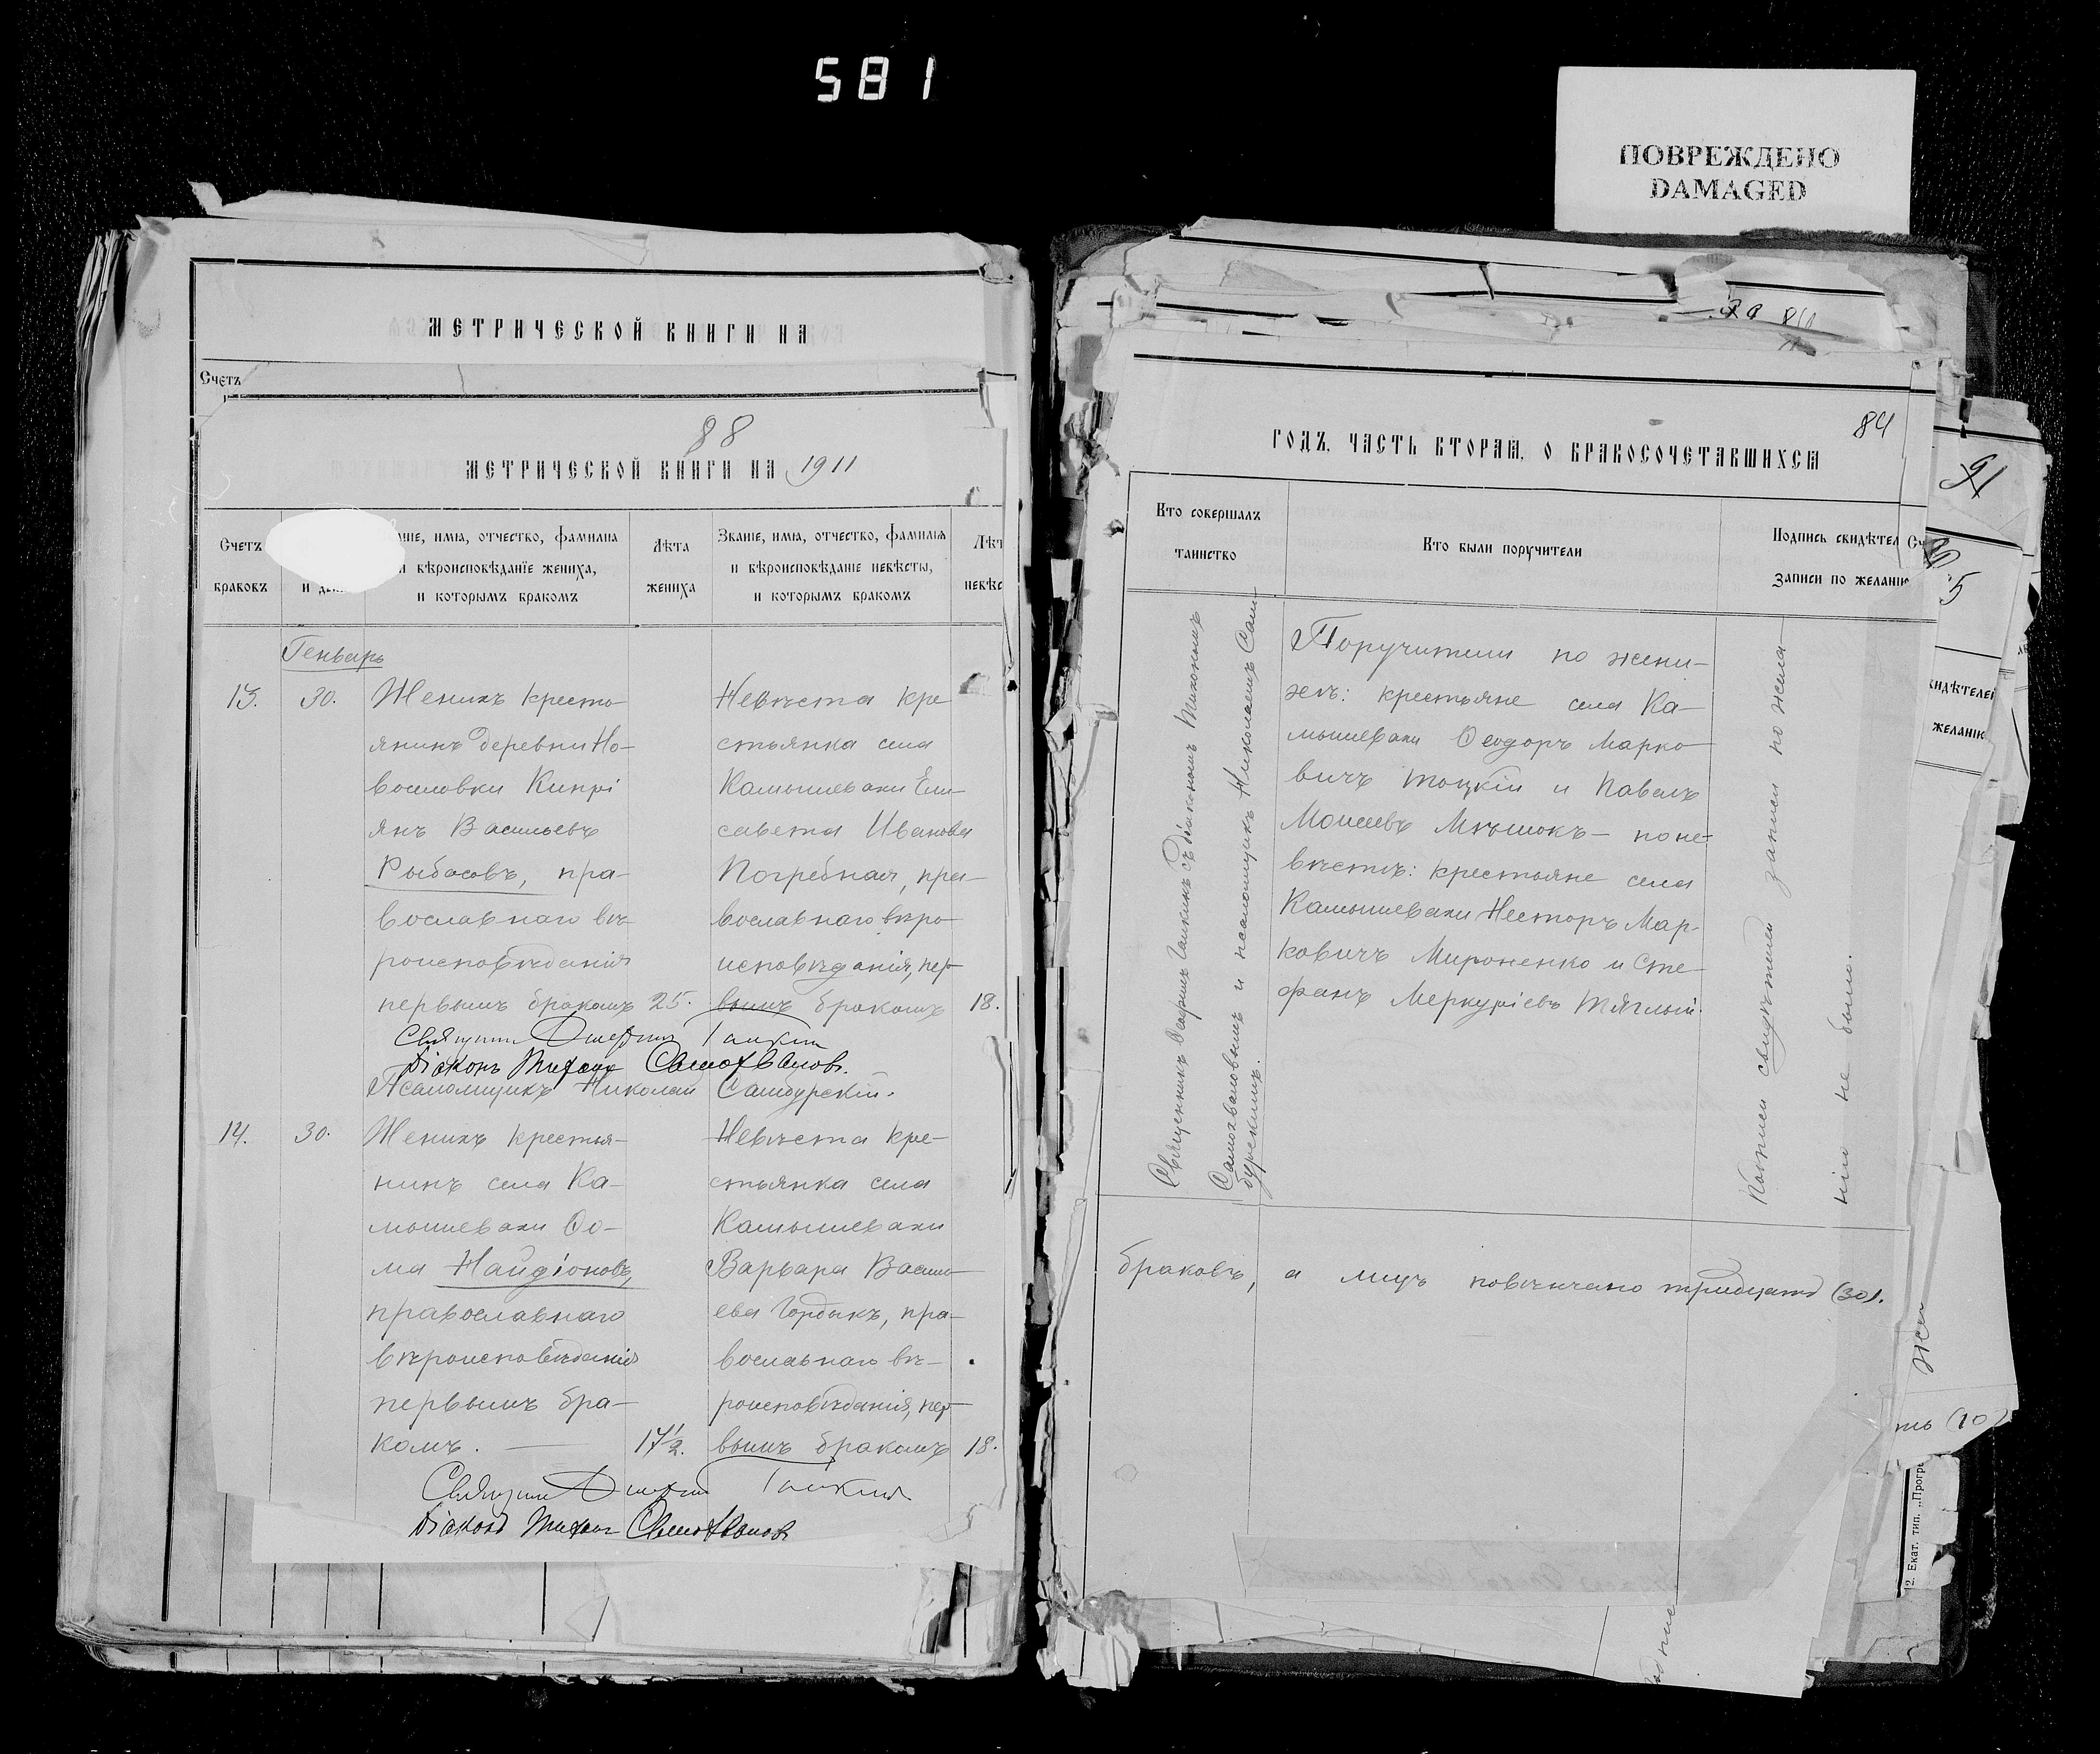 581
ПОВРЕЖДЕНО
DAMAGED
МЕТРИЧЕСКОЙ КНИГИ НА
Счетъ
88
МЕТРИЧЕСКОЙ КНИГИ НА 1911
Счетъ
браковъ
Званіе, имя, отчество, фамилія
и вѣроисповѣданіе жениха,
и которымъ бракомъ
Лѣта
жениха
Званіе, имя, отчество, фамилія
и вѣроисповѣданіе невѣсты,
и которымъ бракомъ
Генварь
13.
30.
Женихъ кресть
янинъ деревни Но-
Кипрі
янъ Васильевъ
Рыбасовъ, пра-
вославнаго вѣ
роисповѣданія
первымъ бракомъ
25.
Невѣста кре
стьянка села
Камышевахи Ели-
савета Иванова
Погребная, пра-
вославнаго вѣро
исповѣданія, пер-
вымъ бракомъ
18.
Діаконъ Тихонъ Самохваловъ.
Псаломщикъ Николай Самбурскій.
14.
30.
Женихъ крестья-
нинъ села Ка-
мышевахи Ѳо-
ма Найдіоновъ,
православнаго
вѣроисповѣданія
первымъ бра-
комъ.
17½.
Невѣста кре-
стьянка села
Камышевахи
Варвара Василь-
ева Гордыкъ, пра-
вославнаго вѣ-
роисповѣданія, пер-
вымъ бракомъ
18.
Діаконъ Тихонъ Самохваловъ
84
ГОДЪ, ЧАСТЬ ВТОРАЯ, О БРАКОСОЧЕТАВШИХСЯ
Кто совершалъ
таинство
Кто были поручители
Подпись свидѣтел
записи по желанію
Священникъ съ діакономъ Тихономъ
Самохваловымъ и псаломщикъ Николаемъ Сам-
бурскимъ.
Поручители по жени-
хѣ: крестьяне села Ка-
мышевахи Ѳеодоръ Марко
вичъ Тоцкій и Павелъ
Моисеевъ Мѣшокъ – по не-
вѣстѣ: крестьяне села
Камышевахи Несторъ Мар-
ковичъ Мироненко и Сте-
фанъ Меркуріевъ Тяглый.
свидѣтелей записи по жела
нію не было.
браковъ, а лицъ повѣнчано тридцать (30).
91
5
свидѣтелей
желанію
ть (10)
Екат. тип. „Прогр